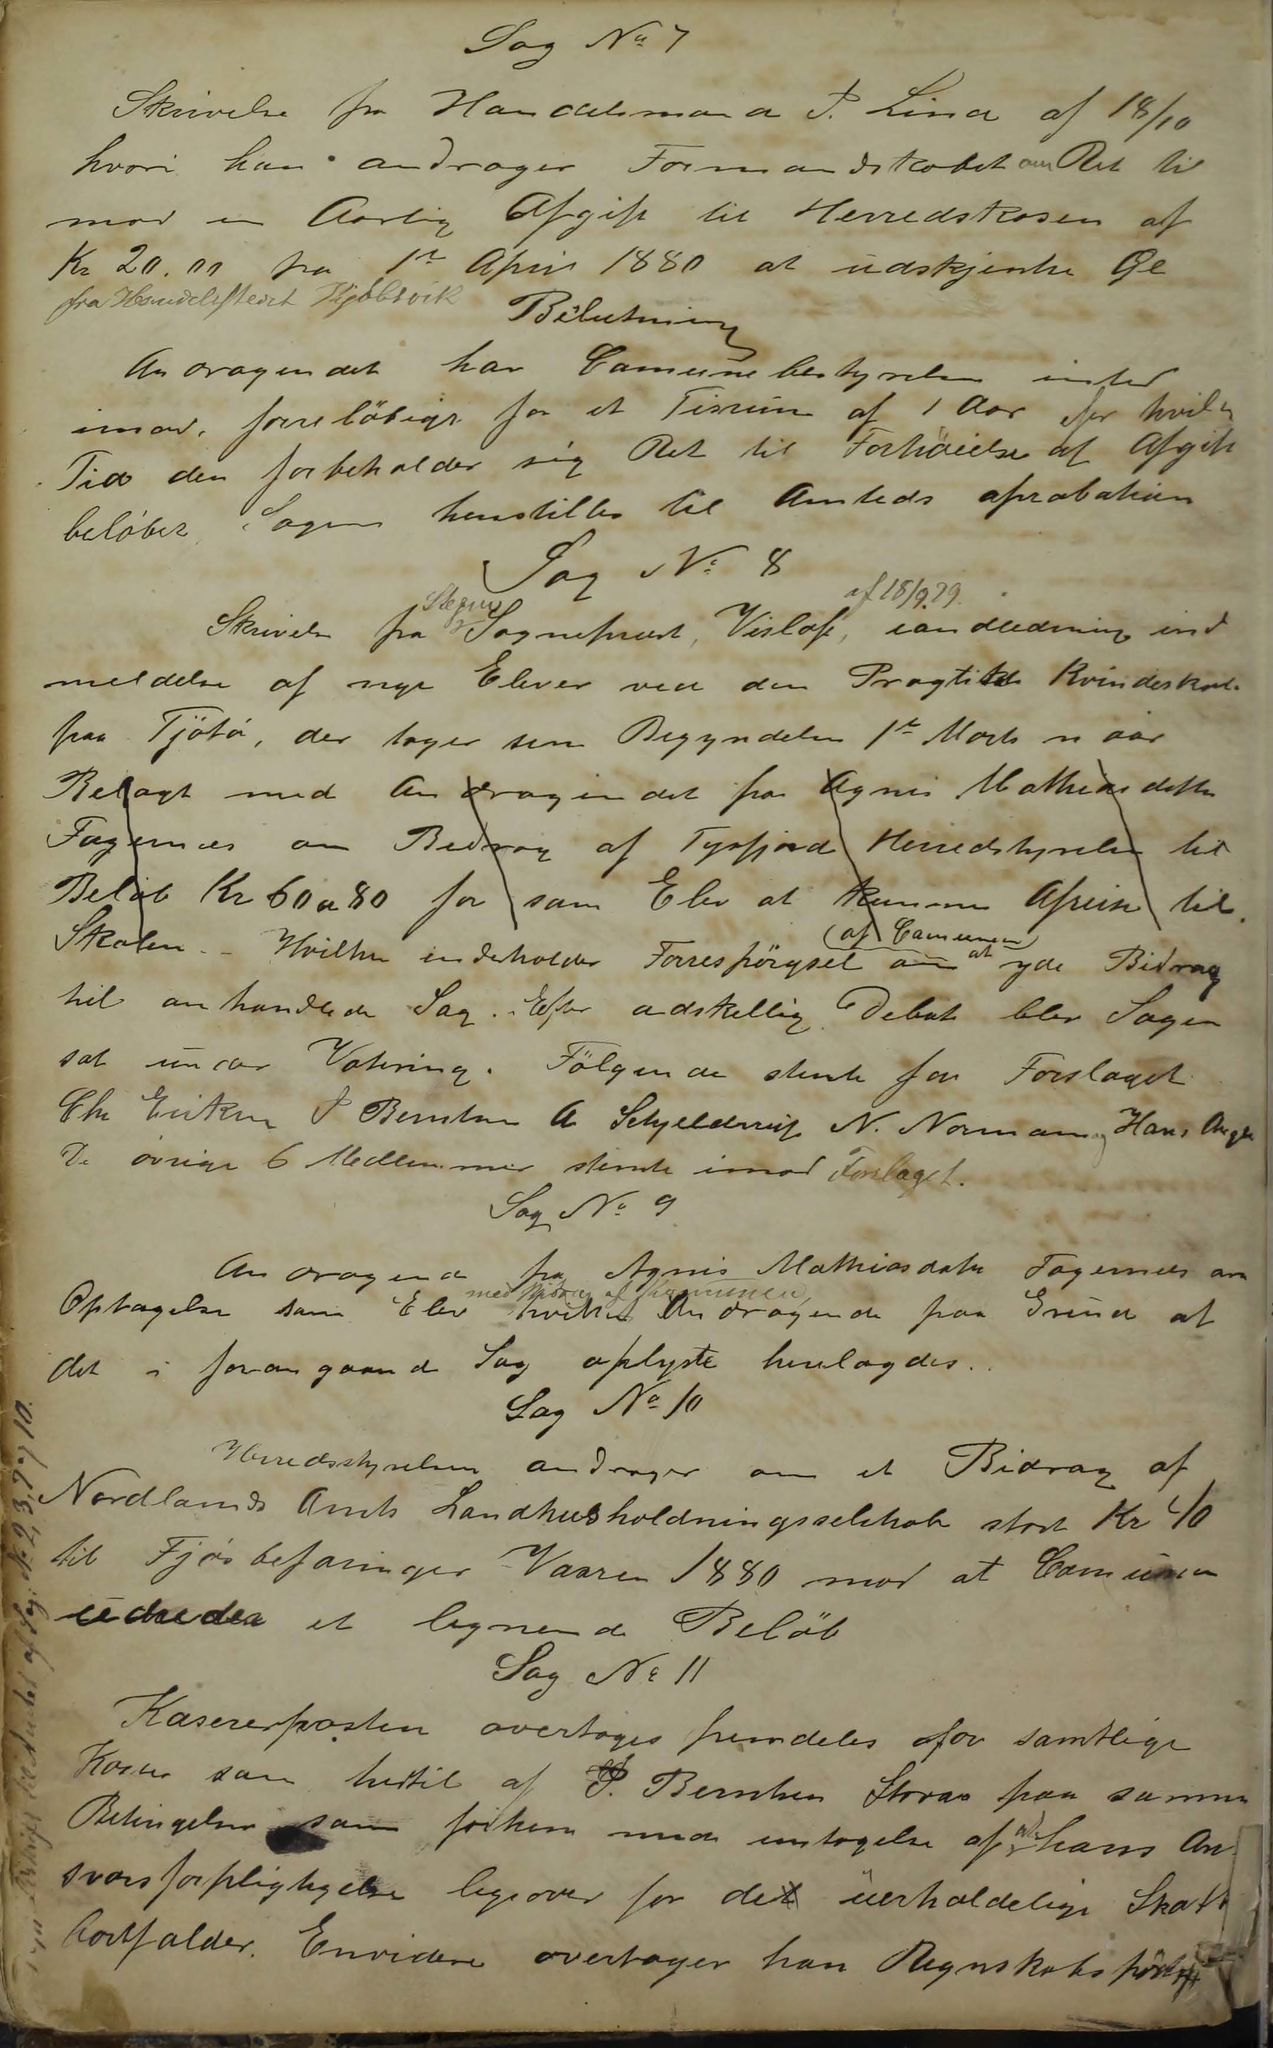 Sag No 7
Skrivelse fra Handelsmand P. Lind af 18/10
hvori han andrager Formandskabet om Ret til
mod en Aarlig Afgift til Herredskasen af
Kr 20.00 fra 1ste April 1880 at udskjenke Øl
fra Handelstedet Kjøbsvik
Beslutning
Andragendet har Comunebestyrelsen intet
imod, foreløbigt for et Tisrum af 1 Aar efter hvilen
Tid den forbeholder sig Ret til Forhöielse af Afgift
beløbet. Sagen henstilles til Amteds aprobation
Sag No 8
Skrivelse fra Sogneprest, Visløf, af 18/9.79. i andledning ind
meldelse af nye Elever ved den Pragtiske Kvindeskole
paa Tjötö, der tager sin Begyndelse 1ste Marts n aar
Belagt med Andragendet fra Agnis Mathiasdatter
Fagernæs om Bedrag af Tysfjord Herredstyrelse til
Beløb Kr 60 a 80 for som Elev at kunne Afreise til
Skolen. - Hvilken indeholder Forrespörgsel om (af Comunen) at yde Bidrag
til omhandlede Sag. Efter adskellig Debat blev Sagen
sat under Votering. Fölgende stemte for Forslaget
Chr Eriksen P Berntsen A Schjelderup N. Normann, Hans
De övrige 6 Medlemmer stemte imod Forslaget.
Sag No 9
Andragende fra Agnis Mathiasdatter Fagernæs om
Optagelse som Elev med Bidrag af Kommunen, hvilket Andragende paa Grund af
det i foran gaaende Sag oplyste henlagdes..
Sag No 10
Herredsstyrelsen andrager om et Bidrag af
Nordlands Amts Landhusholdningsselskab stort Kr 40
til Fjøsbefaringer Vaaren 1880 mod at Comunen
udreder et lignende Beløb
Sag No 11
Kasererposten overtages fremdeles for samtlige
Kasser som hidtil af P. Berntsen Storaa paa samme
Betingelser som forhen med undtagelse af at hans An
svarsforpligtigelse ligeover for det uerholdelige Skatt
bortfalder. Envidere overtager han Regnskabs